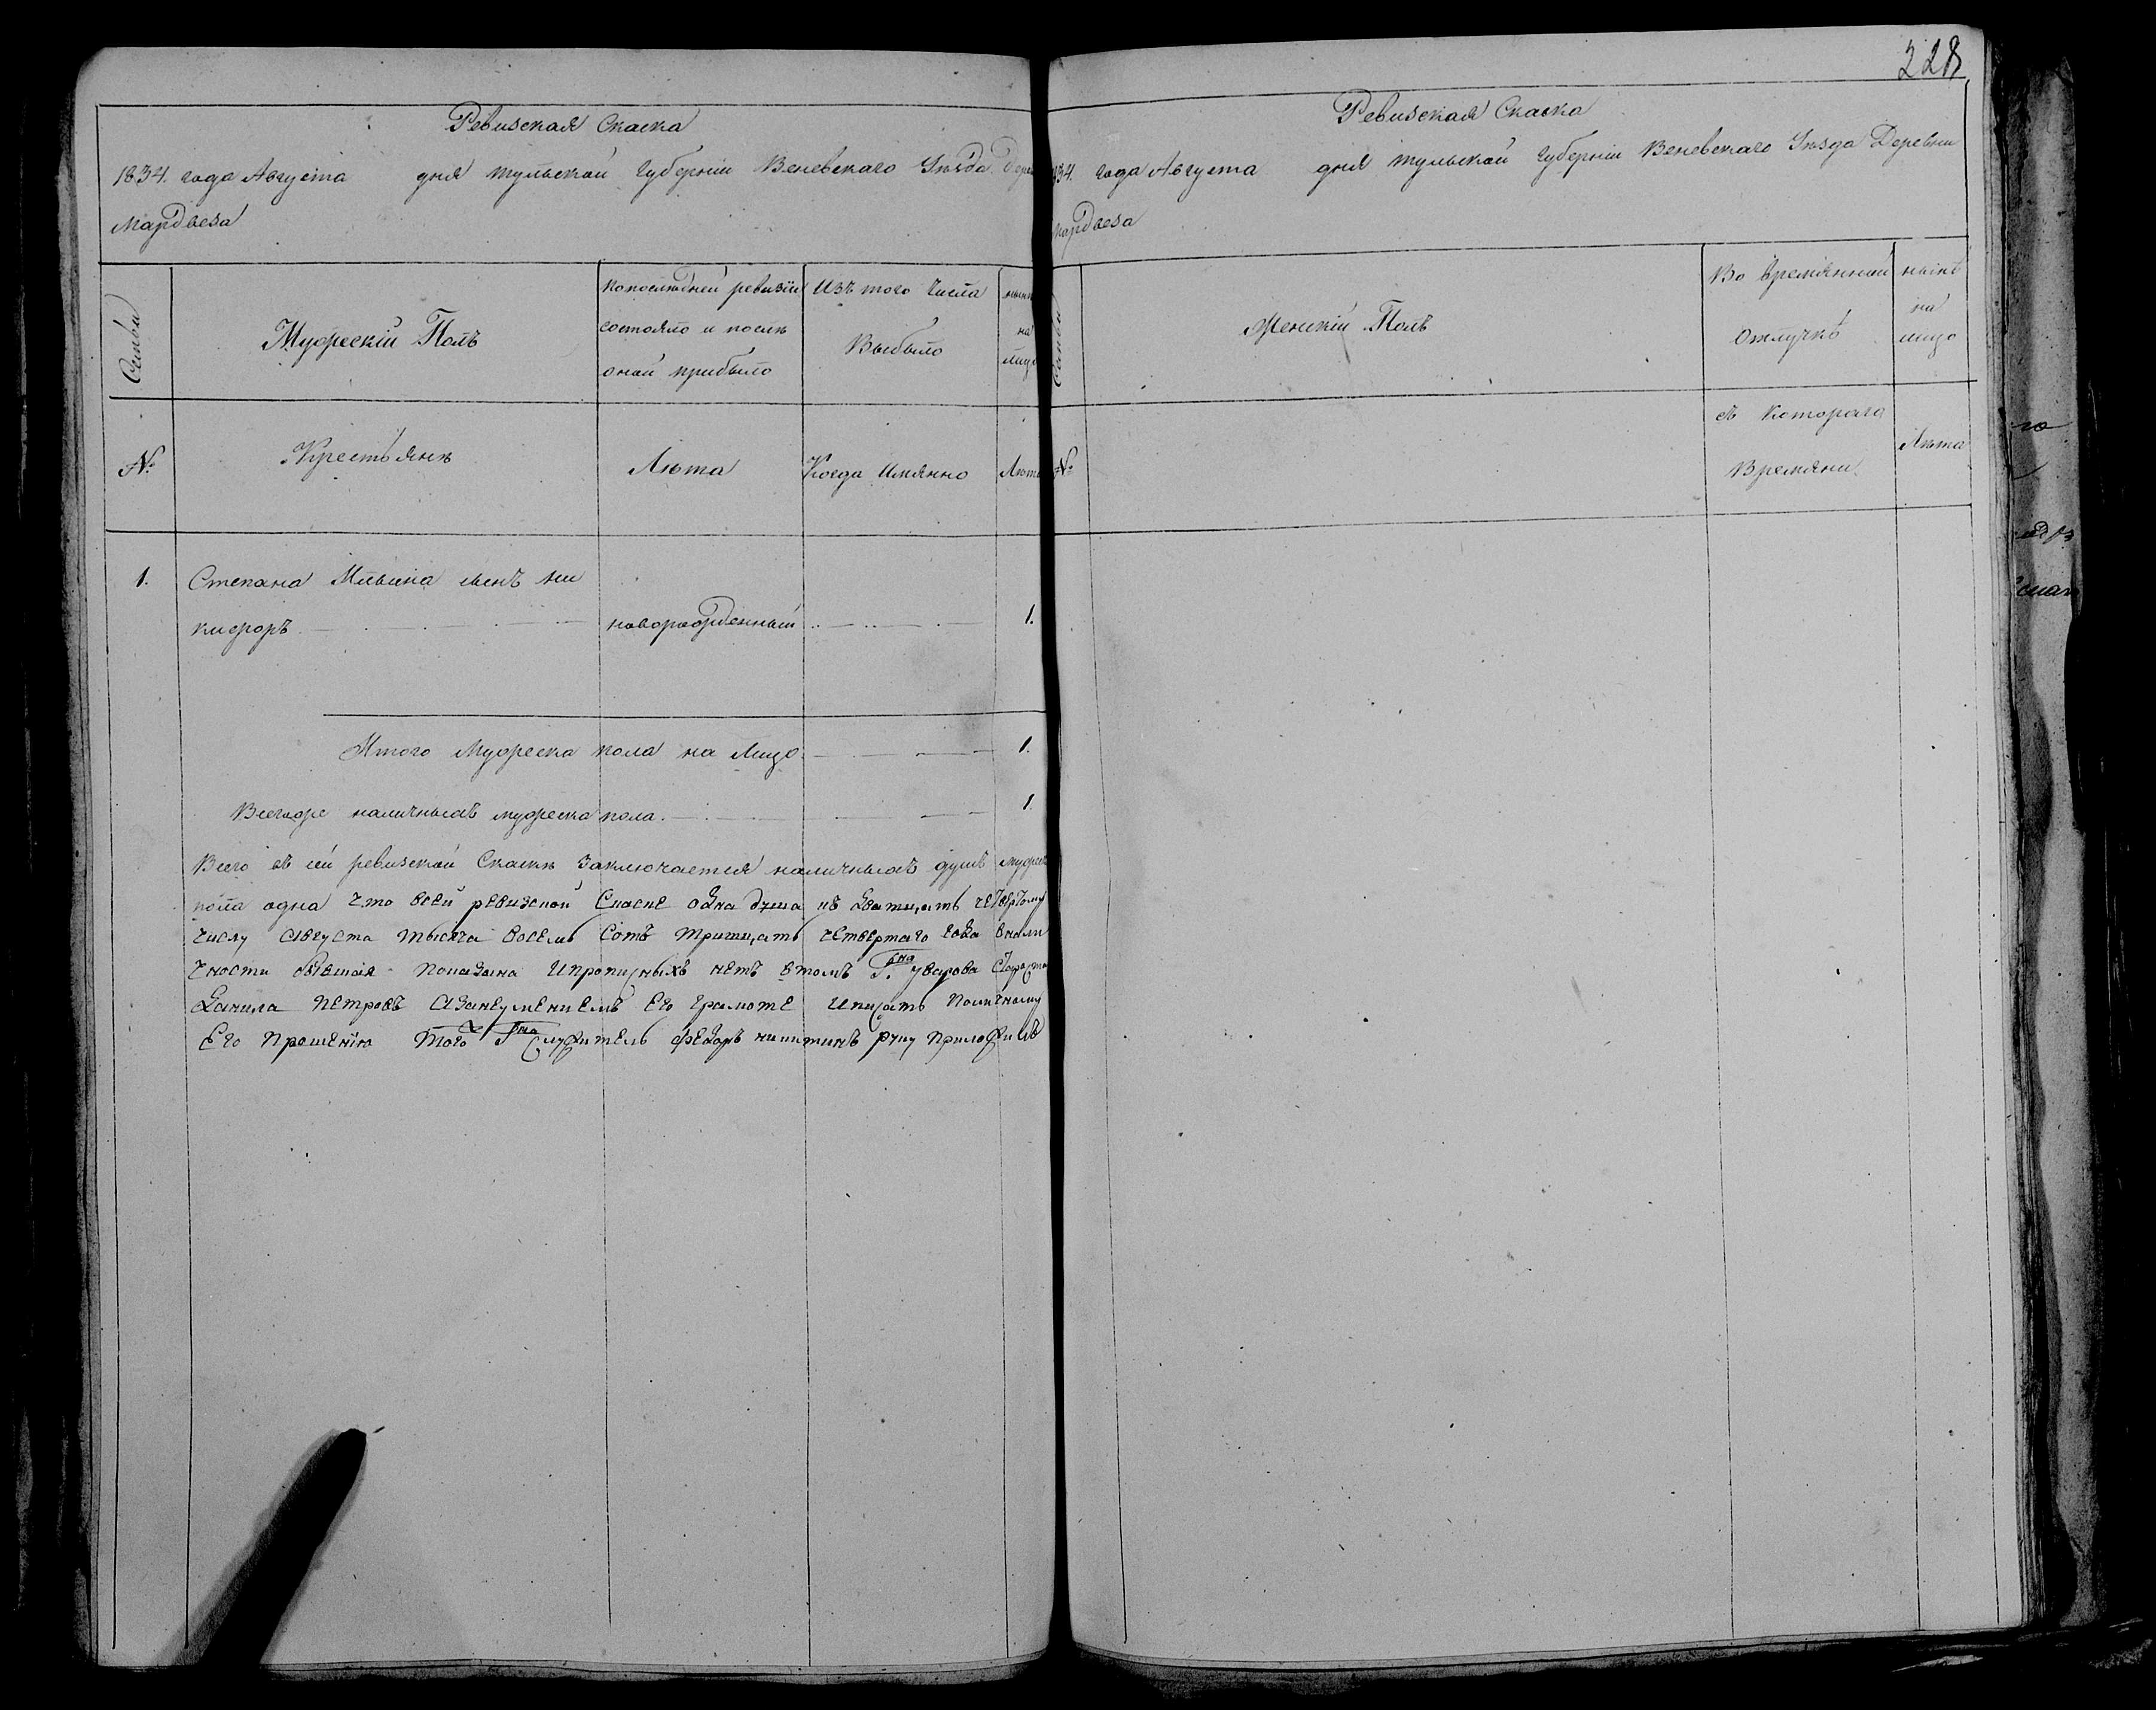 Ревизская Сказка
1834. года Августа дня тульской Губерніи Веневскаго Уѣзда
Мардвеза
Семьи
Мужескій Полъ
Nо
Крестьянѣ
попослѣдней ревизіи
состояло и послѣ
оной прибыло
Лѣта
Изъ того Числа
Выбыло
Когда Имянно
нынѣ
на
лицо
Лѣта
1. Степана Ильина сынъ ни
кифоръ новорожденный 1.
Итого Мужеска пола на Лицо 1.
Всегоже наличныхъ мужеска пола. 1.
Всего въ сей ревизской Сказкѣ заключается наличныхъ душъ мужеск
пола одна что всей ревизской Сказке одна душа къ дватцать четвертому
числу августа тысяча восемь сотъ тритцать четвертаго года внали
чности бывшая показана ипрописныхъ нетъ втомъ Г.на уварова староста
данила Петровъ азанеумениемъ Его грамоте иписать поличному
Его прошенію того Г.на служитель федоръ никитинъ руку приложилъ
228
Ревизская Сказка
834. года Августа дня тульской Губерніи Веневскаго Уѣзда Деревни
Мардвеза
Семьи
Nо
Женскій Полъ
Во времянной
отлучкѣ
съ котораго
Времяни.
нынѣ
на
лицо
Лѣта